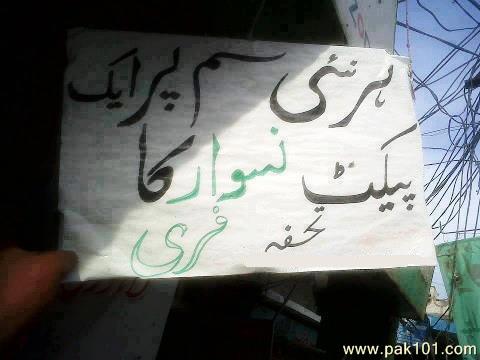 ہر نئی سم پر ایک
پیکٹ نسوار کا
تحفہ فری
www.pak101.com